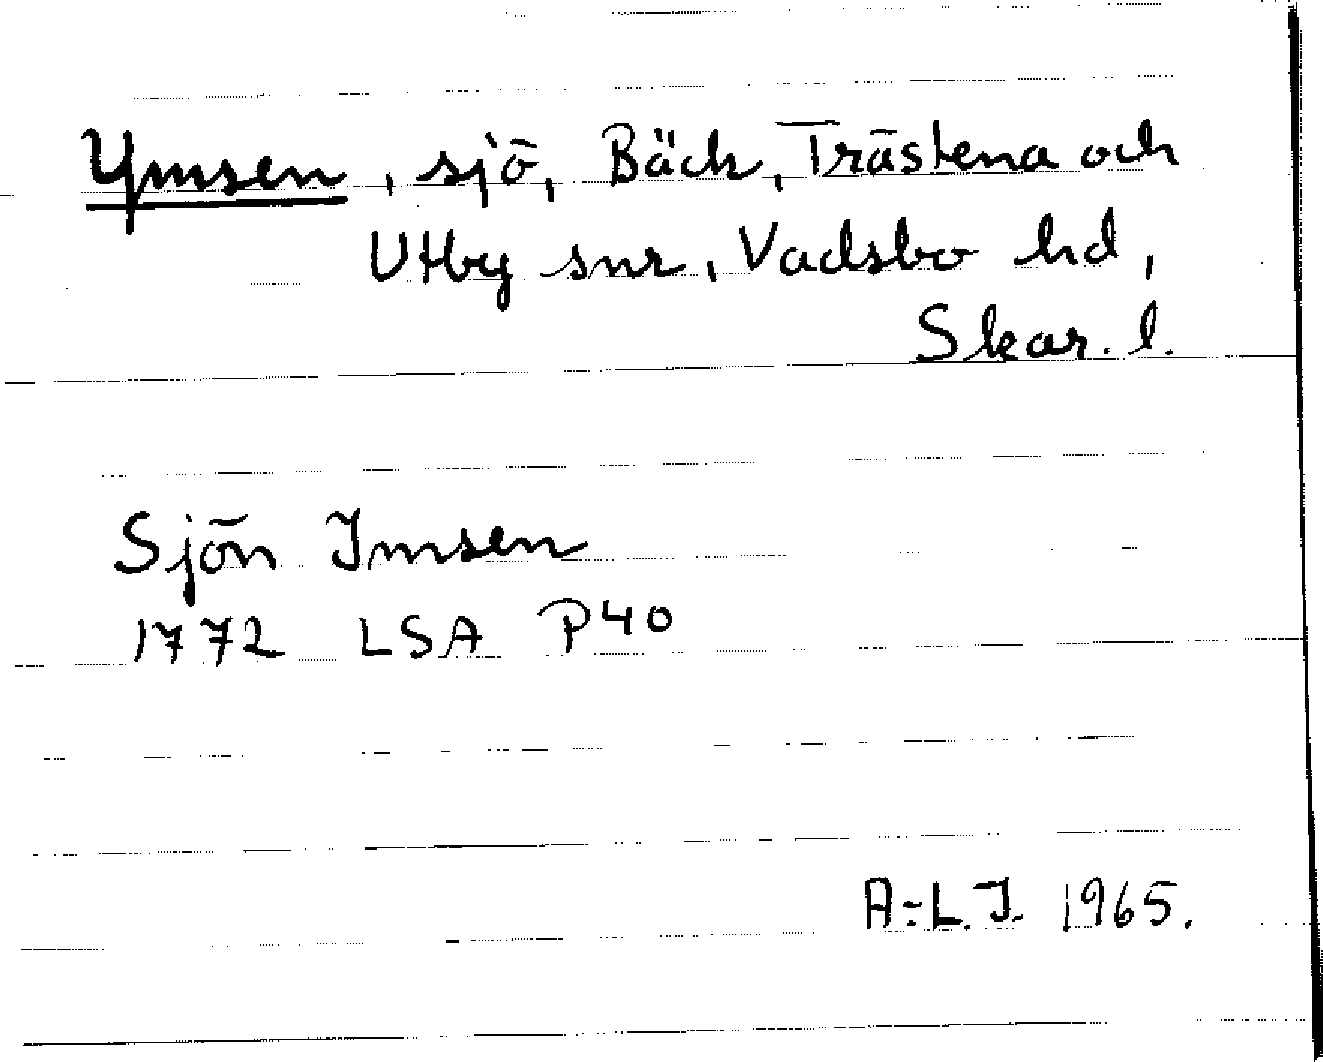 Ymsen, sjö, Bäck, Trästena och
Utby snr, Vadsbo hd,
Skar. l.
Sjön Imsen
1772 LSA P40
A-L.J. 1965.